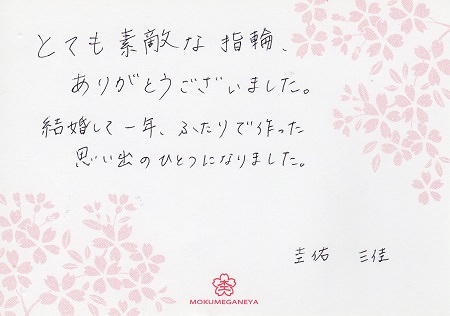 とても素敵な指輪、
ありがとうございました。
結婚して一年、ふたりで作った
思い出のひとつになりました。
圭佑 三佳
MOKUMEGANEYA